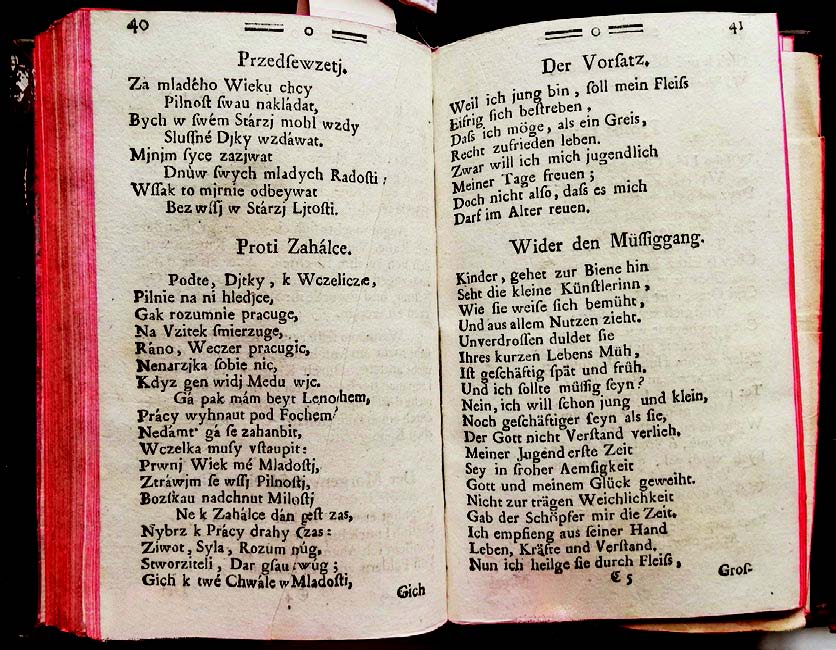 40
Przedſewzetj.
Za mladého Wieku chcy
Pilnoſt ſwau nakládat,
Bych w ſwém Stárzj mohl wzdy
Sluſſné Djky wzdáwat.
Mjnjm ſyce zazjwat
Dnůw ſwych mladych Radoſti;
Wſſak to mjrnie odbeywat
Bez wſſj w Stárzj Ljtoſti.
Proti Zahálce.
Podte, Djtky, k Wczelicze,
Pilnie na ni hledjce,
Gak rozumnie pracuge,
Na Vzitek ſmierzuge,
Ráno, Weczer pracugic,
Nenarzjka ſobie nic,
Kdyz gen widj Medu wjc.
Gá pak mám beyt Lenochem,
Prácy wyhnaut pod Fochem?
Nedámt' gá ſe zahanbit,
Wczelka muſy vſtaupit:
Prwnj Wiek mé Mladoſtj,
Ztráwjm ſe wſſj Pilnoſtj,
Bozſkau nadchnut Miloſtj
Ne k Zahálce dán geſt zas,
Nybrz k Prácy drahy Czas:
Ziwot, Syla, Rozum můg,
Stworziteli, Dar gſau twůg;
Gich k twé Chwále w Mladoſti,
Gich
41
Der Vorſatz.
Weil ich jung bin, ſoll mein Fleiſs
Eifrig ſich beſtreben,
Daſs ich möge, als ein Greis,
Recht zufrieden leben.
Zwar will ich mich jugendlich
Meiner Tage freuen;
Doch nicht alſo, daſs es mich
Darf im Alter reuen.
Wider den Müſſiggang.
Kinder, gehet zur Biene hin
Seht die kleine Künſtlerinn,
Wie ſie weiſe ſich bemüht,
Und aus allem Nutzen zieht.
Unverdroſſen duldet ſie
Ihres kurzen Lebens Müh,
Iſt geſchäftig ſpät und früh.
Und ich ſollte müſſig ſeyn?
Nein, ich will ſchon jung und klein,
Noch geſchäftiger ſeyn als ſie,
Der Gott nicht Verſtand verlieh.
Meiner Jugend erſte Zeit
Sey in froher Aemſigkeit
Gott und meinem Glück geweiht.
Nicht zur trägen Weichlichkeit
Gab der Schöpfer mir die Zeit.
Ich empfieng aus ſeiner Hand
Leben, Kräfte und Verſtand.
Nun ich heilge ſie durch Fleiſs,
C 5
Groſ-